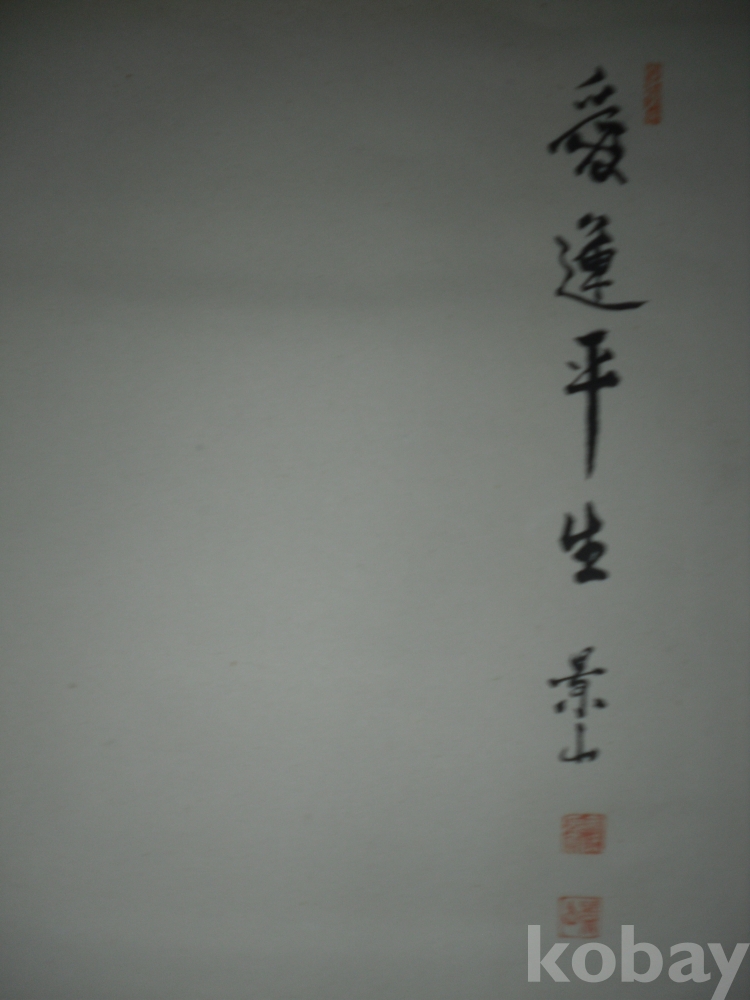 愛蓮平生 景山
kobay